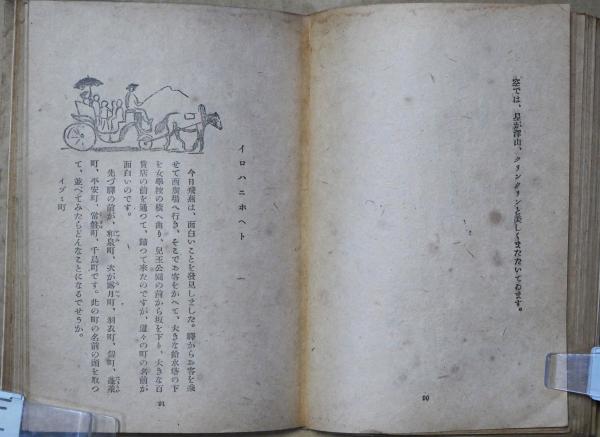 空では、星が澤山、クリンクリンと美しくまたたいてゐます。
90
イロハニホヘト 一
今日飛燕は、面白いことを發見しました。驛からお客を乘
せて西廣場へ行き、そこでお客をかへて、大きな給水塔の下
を女學校の横へ曲り、兒玉公園の前から坂を下り、大きな百
貨店の前を通つて、歸つて來たのですが、道々の町の名前が
面白いのです。
先づ驛の前が、和泉町、次が露月町、羽衣町、錦町、蓬萊
町、平安町、常盤町、千鳥町です。此の町の名前の頭を取つ
て、並べてみたらどんなことになるでせうか。
イヅミ町
91